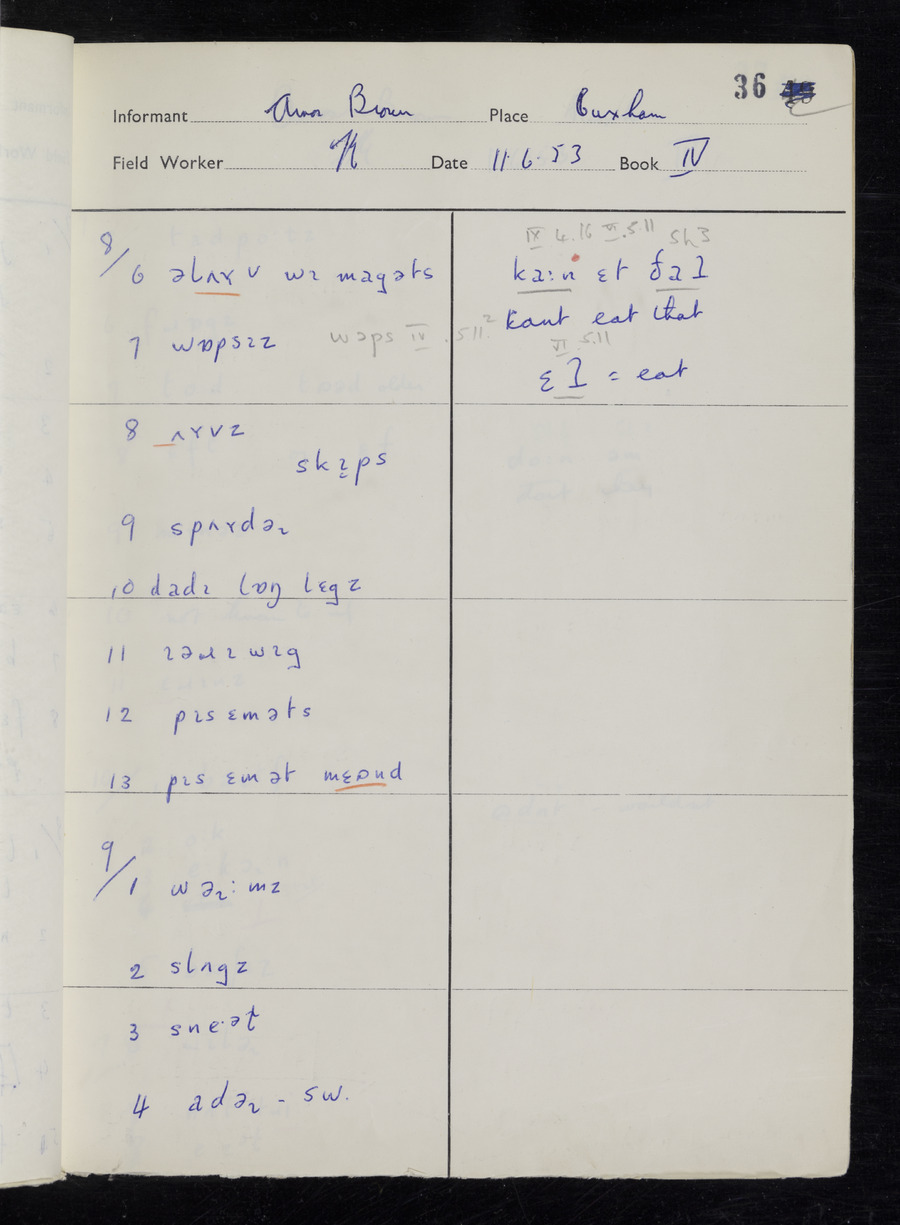 36
Informant Brown Place Cuxham
Field Worker Date 11.6.53 Book IV
8/6 əlʌɤv wɪ magəts
7 wɒpsɪz wɔps IV .5.11.²
8 ʌɤvz
skɪ̞ps
9 spʌɤdəɪ
10 dadɪ lɒŋ lɛgz
11 wɪg
12 pɪsɛməts
13 pɪs ɛmət mɛɒnd
9/1 wəɪ:mz
2 slʌgz
3 sne·ət
4 adəɪ - sw.
IX 4.16 VI.5.11 Sh3
ka:n ɛt ðaʔ
kant eat that
VI .5.11
ɛʔ = eat